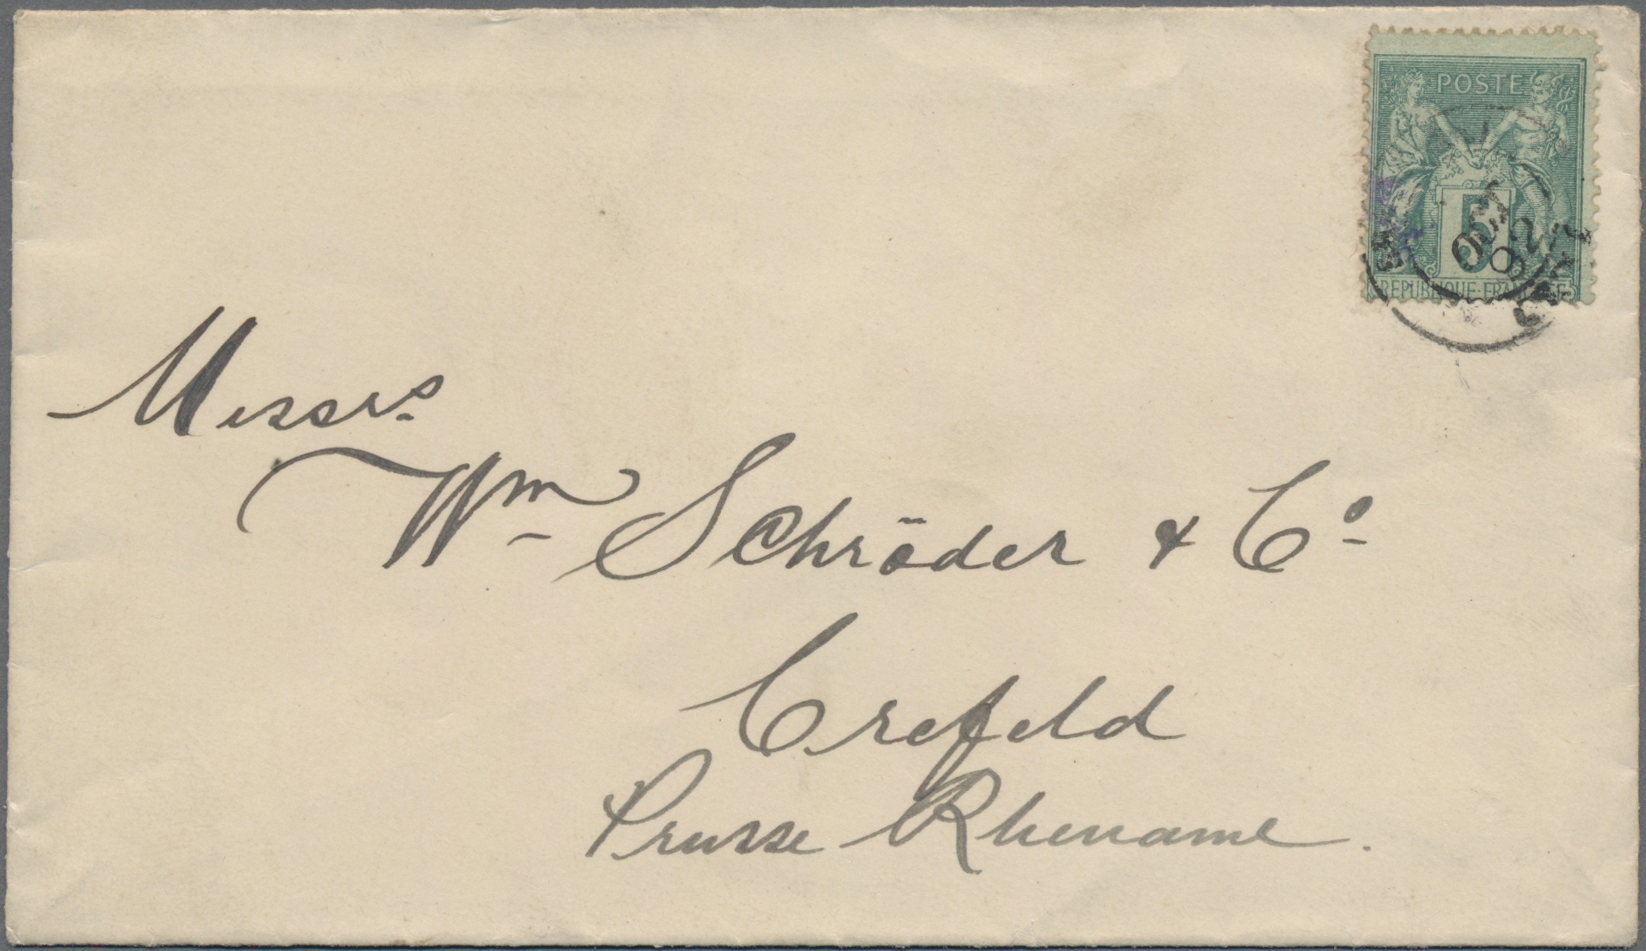 POSTE
5
REPUBLIQUE FRANCAISE
Messrs
Wm Schröder & Co
Crefeld
Prusse Rhename.